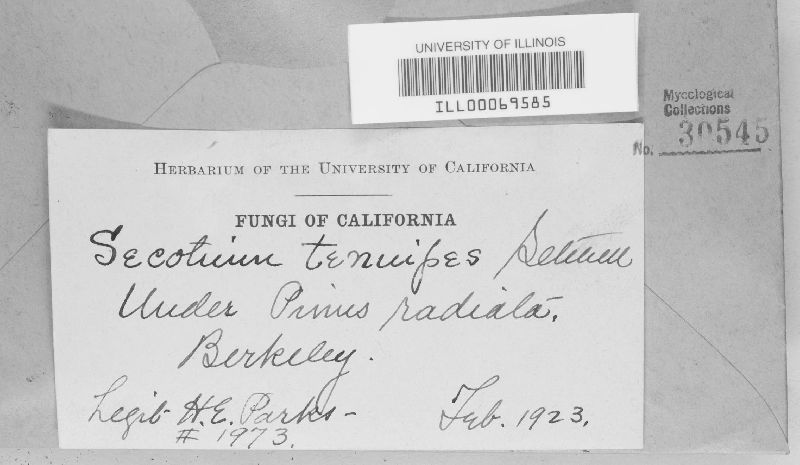 UNIVERSITY OF ILLINOIS
ILL00069585
Mycological
Collections
No. 30545
HERBARIUM OF THE UNIVERSITY OF CALIFORNIA
FUNGI OF CALIFORNIA
Secotium tenuipes Setchell
Under Pinus radiata.
Berkeley.
Legit H.E. Parks - Feb. 1923.
# 1973.